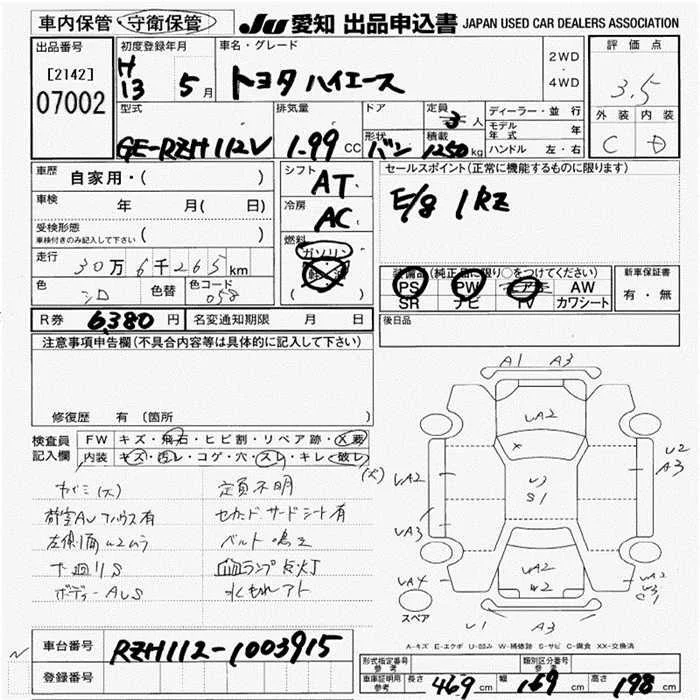 車内保管・守衛保管 JU 愛知 出品申込書 JAPAN USED CAR DEALERS ASSOCIATION
出品番号 初度登録年月 車名・グレード 2WD・4WD 評価点
[2142] H13 5月 トヨタ ハイエース 3.5
07002
型式 排気量 ドア 定員 3人 ディーラー・並行 外装 内装
GE-RZH112V 1.99 CC 形状 バン 積載 1250kg モデル年式 年 C D
ハンドル 左・右
車歴 自家用・( ) シフト AT セールスポイント(正常に機能するものに限ります)
車検 年 月( 日) 冷房 AC E/g 1RZ
受検形態 ( )
車検付きのみ記入して下さい
燃料 ガソリン
走行 30万6千265km 軽油
( ) 装備品(純正品に限り○をつけてください) 新車保証書
色 シロ 色替 色コード 058 PS PW AW 有・無
SR ナビ TV カワシート
R券 6380円 名変通知期限 月 日 後日品
注意事項申告欄(不具合内容等は具体的に記入して下さい)
修復歴 有 (箇所 )
検査員記入欄 FW キズ・飛石・ヒビ割・リペア跡・X要
内装 キズ・汚レ・コゲ・穴・スレ・キレ・破レ
定員不明
セカンド サードシート有
左側面 ムラ ベルト鳴き
下廻りS ランプ点灯
水もれアト
A1 A3
UA2
UA2 U2
A3
S1
UA3
UA2
W2
UA4
スペア U1 A3
A-キズ E-エクボ U-凹み W-補修跡 S-サビ C-腐食 XX-交換済
車台番号 RZH112-1003915
登録番号
形式指定番号 参考 類別区分番号 参考
車庫証明用 参考 長さ 469cm 幅 169cm 高さ 198cm